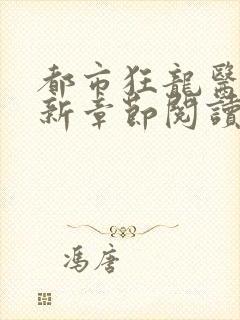 都市狂龍醫
新章節閱讀
馮唐